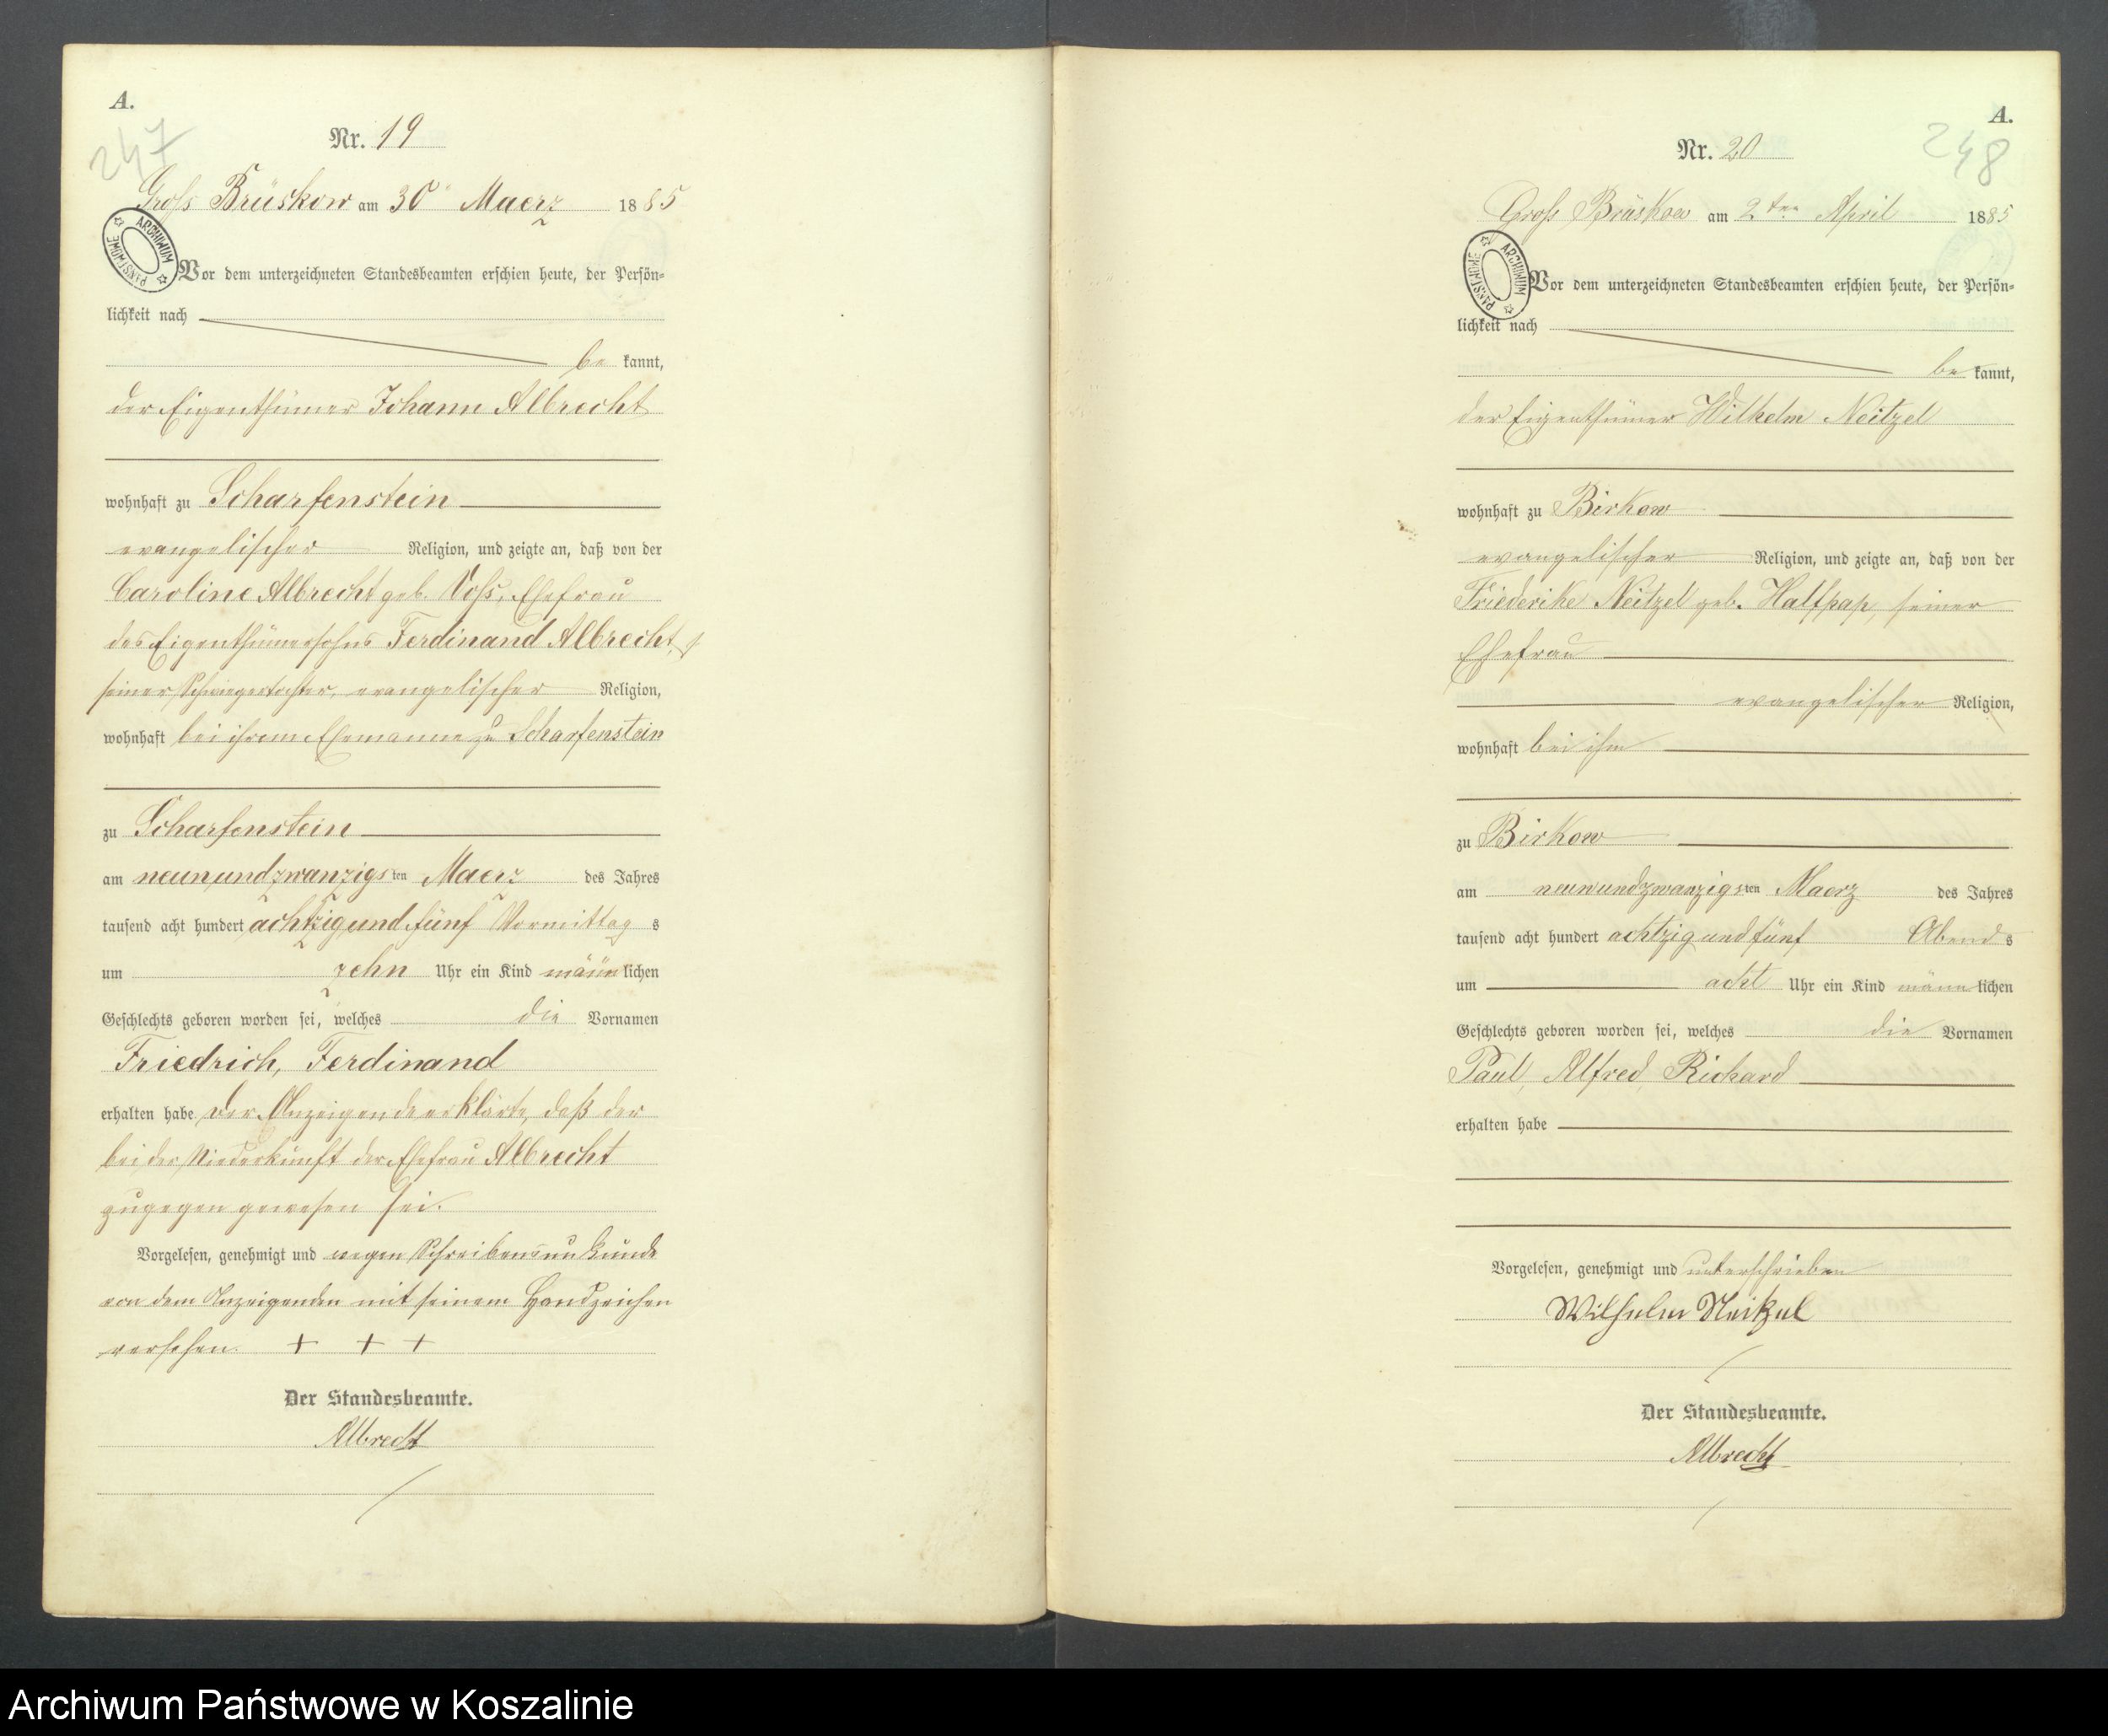 A.
247
Nr. 19
Gross Brüskow am 30" Maerz 1885
ARCHIWUM PAŃSTWOWE
Vor dem unterzeichneten Standesbeamten erschien heute, der Persön-
lichkeit nach
be kannt,
der Eigenthümer Johann Albrecht
wohnhaft zu Scharfenstein
evangelischer Religion, und zeigte an, daß von der
Caroline Albrecht geb. Voss, Ehefrau
des Eigenthümersohns Ferdinand Albrecht,
seiner Schwiegertochter, evangelischer Religion,
wohnhaft bei ihrem Ehemanne zu Scharfenstein
zu Scharfenstein
am neunundzwanzigsten Maerz des Jahres
tausend acht hundert achtzig und fünf Vormittags
um zehn Uhr ein Kind männlichen
Geschlechts geboren worden sei, welches die Vornamen
Friedrich, Ferdinand
erhalten habe. Der Anzeigende erklärte, daß der
bei der Niederkunft der Ehefrau Albrecht
zugegen gewesen sei.
Vorgelesen, genehmigt und wegen Schreibensunkunde
von dem Anzeigenden mit seinem Handzeichen
versehen. + + +
Der Standesbeamte.
Albrecht
A.
248
Nr. 20
Gross Brüskow am 2ten April 1885
ARCHIWUM PAŃSTWOWE
Vor dem unterzeichneten Standesbeamten erschien heute, der Persön-
lichkeit nach
be kannt,
der Eigenthümer Wilhelm Neitzel
wohnhaft zu Birkow
evangelischer Religion, und zeigte an, daß von der
Friederike Neitzel geb. Halfpap, seiner
Ehefrau
evangelischer Religion,
wohnhaft bei ihm
zu Birkow
am neunundzwanzigsten Maerz des Jahres
tausend acht hundert achtzig und fünf Abends
um acht Uhr ein Kind männlichen
Geschlechts geboren worden sei, welches die Vornamen
Paul, Alfred, Richard
erhalten habe
Vorgelesen, genehmigt und unterschrieben
Wilhelm Neitzel
Der Standesbeamte.
Albrecht
Archiwum Państwowe w Koszalinie